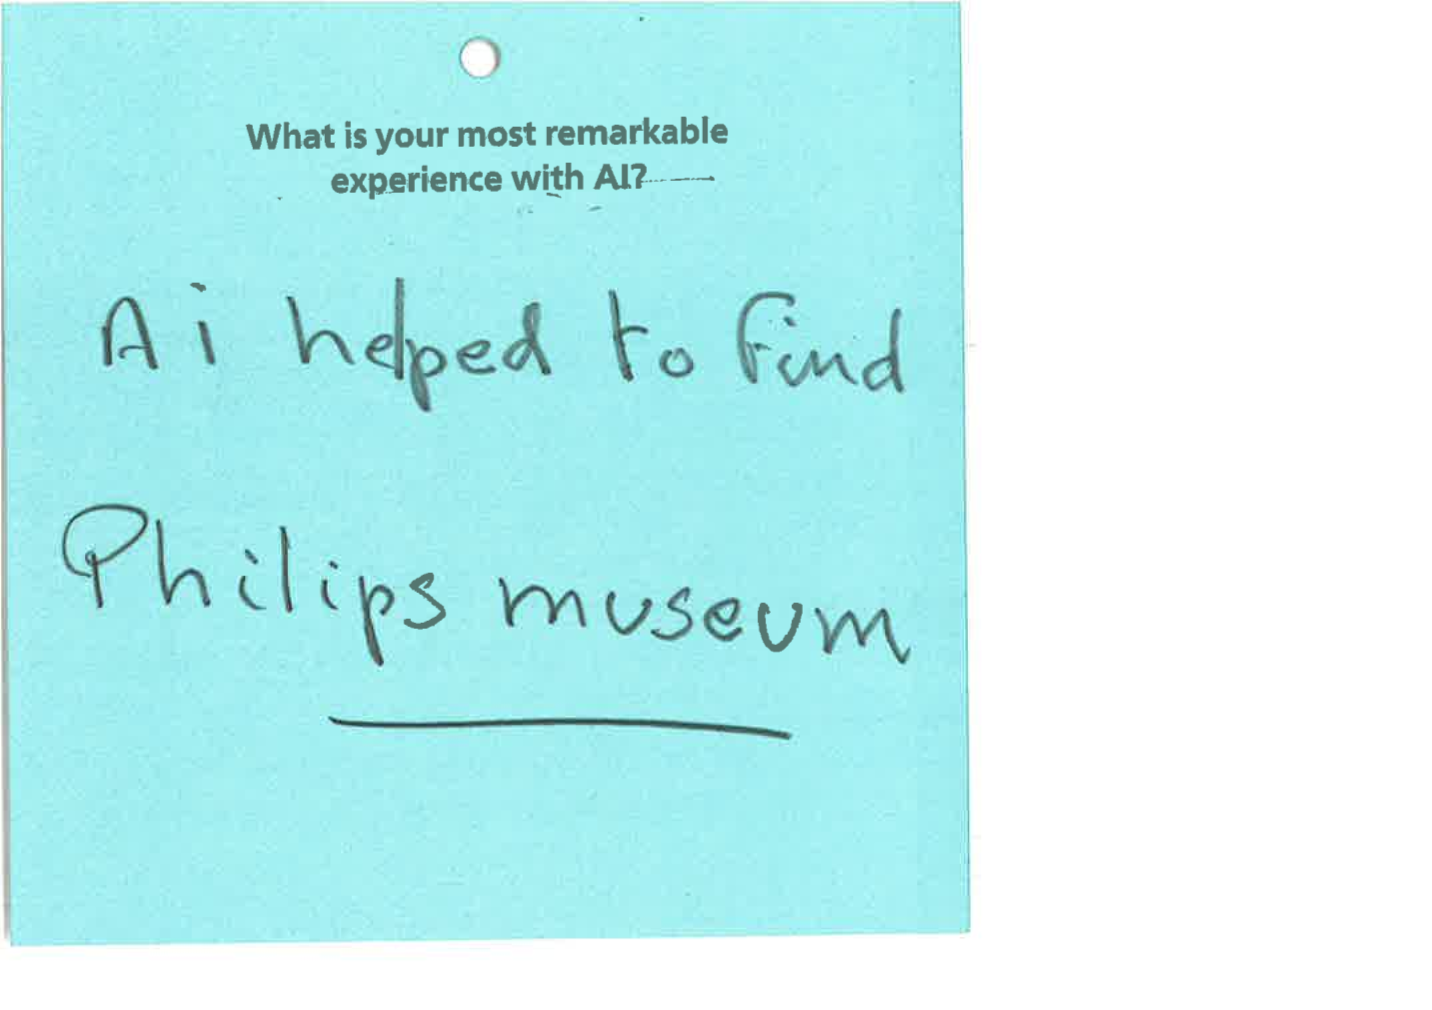 What is your most remarkable
experience with AI?
Ai helped to find
Philips museum